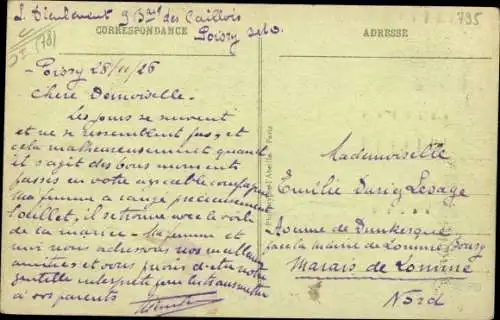 9 Bd des Caillois
Poissy S&O.
795
(78)
CORRESPONDANCE
ADRESSE
Poissy 28/11/26
Chère Demoiselle.
Les jours se suivent
et ne se ressemblent pas, et
cela malheureusement quand
il s'agit des bons moments
passés en votre agréable compagnie
Ma femme a rangé précieusement
l'oeillet, il se trouve avec le voile
de la mariée - Ma femme et
moi nous adressons nos meilleures
amitiés et vous prions d'être notre
gentille interprète pour les transmettre
à vos parents
Mademoiselle
Emilie Lesage
Avenue de Dunkerque
face la mairie de Lomme Bourg
Marais de Lomme
Nord